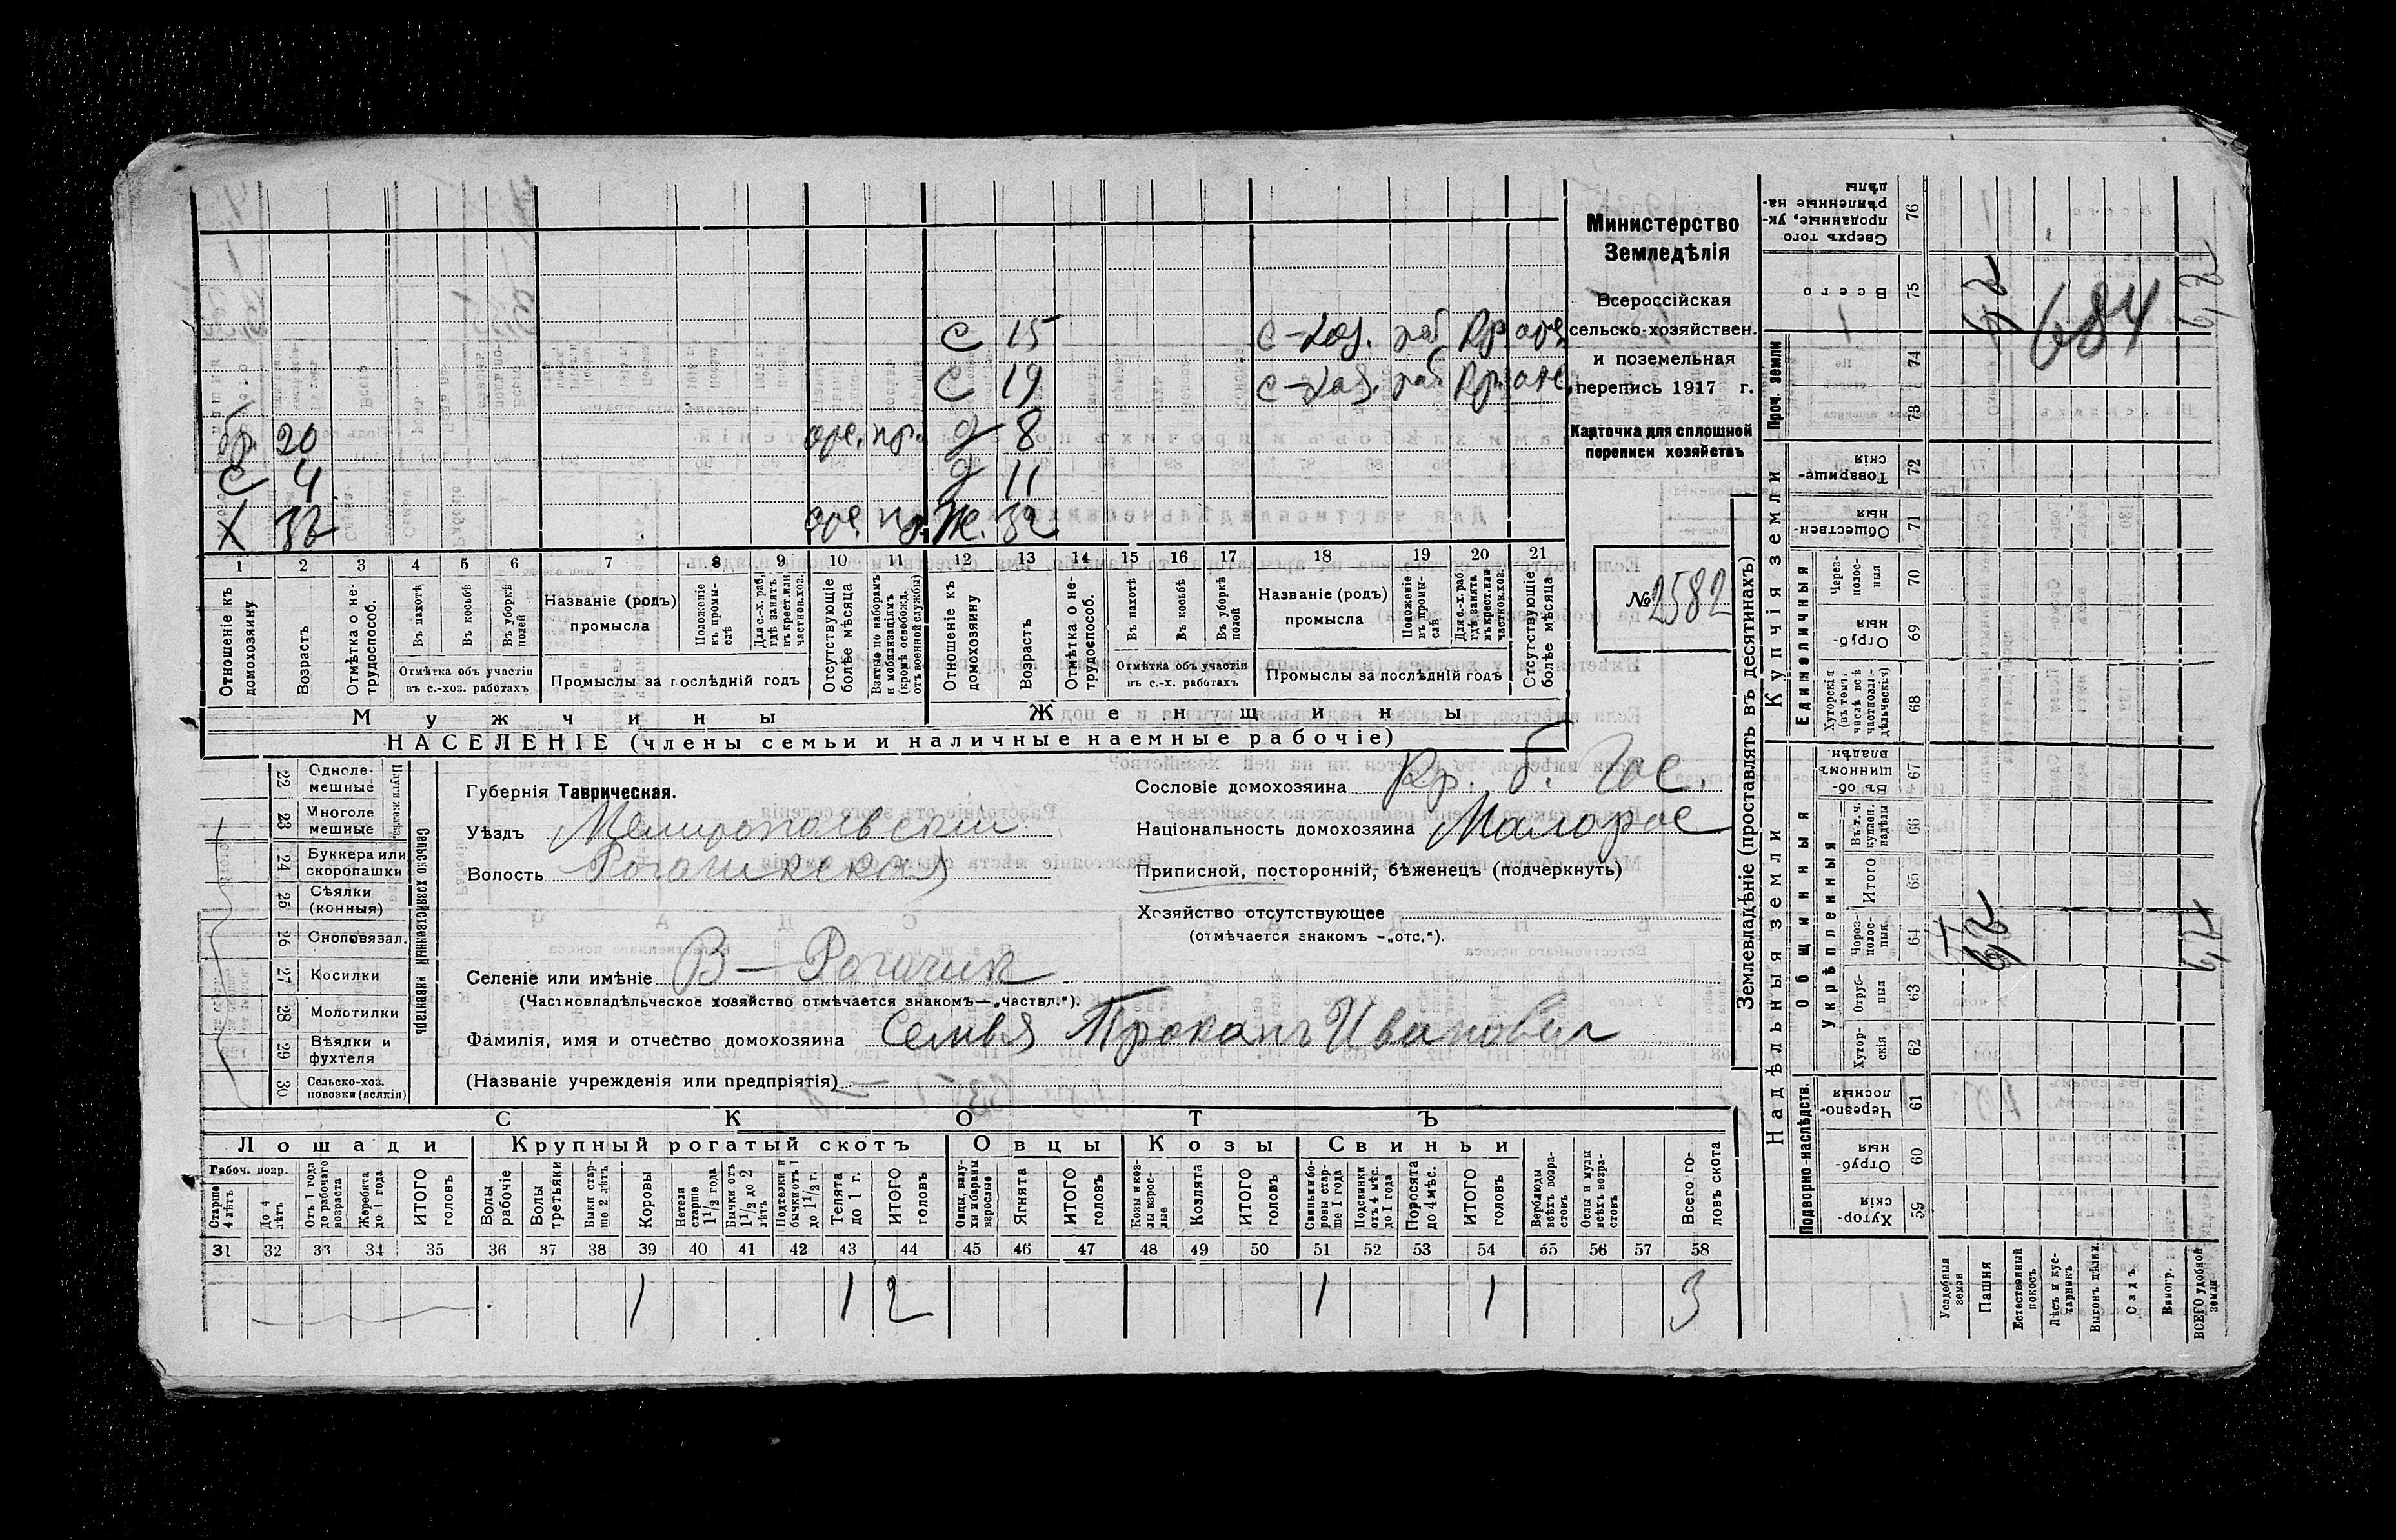 С 15 с-хоз. раб Кр отс
С 19 с-хоз. раб Кр. отс.
бр. 20 отс. пр. д 8
С 4 д 11
Х 32 отс. пр. Ж. 32
1 2 3 4 5 6 7 8 9 10 11 12 13 14 15 16 17 18 19 20 21
Отношеніе къ домохозяину
Возрастъ
Отмѣтка о не-трудоспособ.
Въ пахотѣ
Въ косьбѣ
Въ уборкѣ полей
Отмѣтка объ участіи
въ с.-хоз. работахъ
Названіе (родъ)
промысла
Положеніе въ промы-слѣ
Для с.-х. раб., гдѣ занятъ въ крест. или частнов. хоз.
Промыслы за послѣдній годъ
Отсутствующіе болѣе мѣсяца
Взятые по наборамъ и мобилизаціямъ (кромѣ освобожд. отъ военной службы)
Отношеніе къ домохозяину
Возрастъ
Отмѣтка о не-трудоспособ.
Въ пахотѣ
Въ косьбѣ
Въ уборкѣ полей
Отмѣтка объ участіи
въ с.-х. работахъ
Названіе (родъ)
промысла
Положеніе въ промы-слѣ
Для с.-х. раб. гдѣ занята въ крест. или частнов. хоз.
Промыслы за послѣдній годъ
Отсутствующіе болѣе мѣсяца
Мужчины Женщины
НАСЕЛЕНІЕ (члены семьи и наличные наемные рабочіе)
Министерство
Земледѣлія
Всероссійская
сельско-хозяйствен.
и поземельная
перепись 1917 г.
Карточка для сплошной
переписи хозяйствъ
№ 2582
22 Одноле-мешные
23 Многоле мешные
24 Буккера или скоропашки
25 Сѣялки (конныя)
26 Сноповязал.
27 Косилки
28 Молотилки
29 Вѣялки и фухтеля
30 Сельско-хоз. повозки (всякія)
Сельско хозяйственный инвентарь
Губернія Таврическая.
Уѣздъ Мелитопольскій
Волость Рогачикская
Селеніе или имѣніе В-Рогачик
(Частновладѣльческое хозяйство отмѣчается знакомъ—„частвл.“).
Фамилія, имя и отчество домохозяина Семья Прокопъ Иванович
(Названіе учрежденія или предпріятія)
Сословіе домохозяина Кр. б. Гос.
Національность домохозяина Малорос
Приписной, посторонній, бѣженецъ (подчеркнуть)
Хозяйство отсутствующее
(отмѣчается знакомъ —„отс.“).
СКОТЪ
Лошади Крупный рогатый скотъ Овцы Козы Свиньи
Рабоч. возр.
Старше 4 лѣтъ
До 4 лѣтъ
Отъ 1 года до рабочаго возраста
Жеребята до 1 года
ИТОГО головъ
Волы рабочіе
Волы третьяки
Быки стар-ше 2 лѣтъ
Коровы
Нетели старше 1½ года
Бычки отъ 1½ до 2 лѣтъ
Подтелки и бычки отъ 1 до 1½ г.
Телята до 1 г.
ИТОГО головъ
Овцы, валу-хи и бараны взрослые
Ягнята
ИТОГО головъ
Козы и коз-лы взрос-лые
Козлята
ИТОГО головъ
Свиньи и бо-ровы стар-ше 1 года
Подсвинки отъ 4 мѣс. до 1 года
Поросята до 4 мѣс.
ИТОГО головъ
Верблюды всѣхъ возра-стовъ
Ослы и мулы всѣхъ возра-стовъ
Всего го-ловъ скота
31 32 33 34 35 36 37 38 39 40 41 42 43 44 45 46 47 48 49 50 51 52 53 54 55 56 57 58
1 1 2 1 1 3
Землевладѣніе (проставлять въ десятинахъ)
Надѣльныя земли Купчія земли Проч. земли
Подворно-наслѣдств. Общинныя Единоличныя
Укрѣпленныя
Сверхъ того проданные, ук-рѣпленные на-дѣлы 76
Всего 75
74
73
Товарище-скія 72
Обществен-ныя 71
Через-полос-ныя 70
Отруб-ныя 69
Хуторскія (въ томъ числѣ всѣ частновла-дѣльческія) 68
Въ об-щинномъ владѣн. 67
Въ т. ч. куплен. надѣлы 66
Итого 65
Через-полос-ныя 64
Отруб-ныя 63
Хутор-скія 62
Черезпо-лосныя 61
Отруб-ныя 60
Хутор-скія 59
684
Усадебныя земли
Пашня
Естественный покосъ
Лѣсъ и кус-тарникъ
Выгонъ цѣлин.
Садъ
Виногр.
ВСЕГО удобной земли